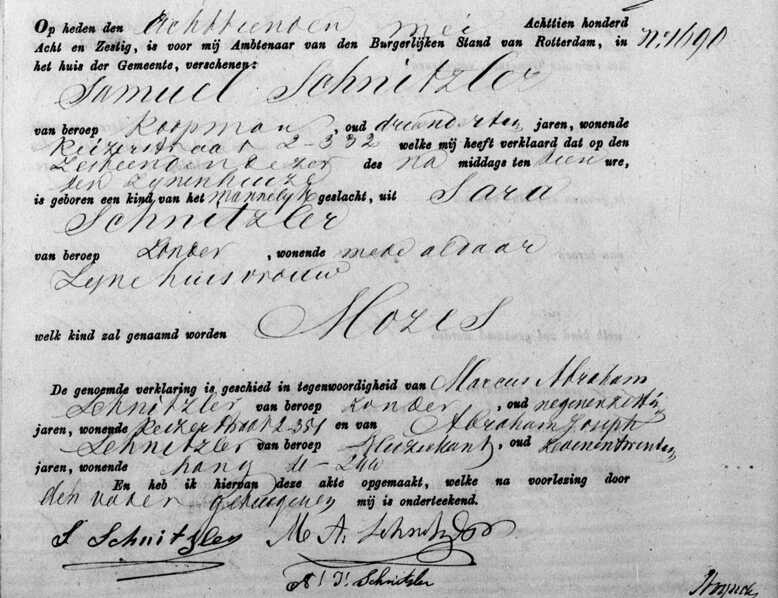 Op heden den Achttienden mei Achttien honderd
Acht en Zestig, is voor mij Ambtenaar van den Burgerlijken Stand van Rotterdam, in No 1690
het huis der Gemeente, verschenen:
Samuel Schnitzler
van beroep Koopman, oud drieendertig jaren, wonende
Keizerstraat 2-332 welke mij heeft verklaard dat op den
Zestienden dezer des na middags ten tien ure,
ten Zynenhuize
is geboren een kind van het Mannelyk geslacht, uit Sara
Schnitzler
van beroep Zonder, wonende mede aldaar
Zyne huisvrouw
welk kind zal genaamd worden Mozes
De genoemde verklaring is geschied in tegenwoordigheid van Marcus Abraham
Schnitzler van beroep Zonder, oud
jaren, wonende Keizerstraat 2-351 en van Abraham Joseph
Schnitzler van beroep Muziekant, oud Zevenentwintig
jaren, wonende hang
En heb ik hiervan deze akte opgemaakt, welke na voorlezing door
den vader getuigen mij is onderteekend.
S Schnitzler M A. Schnitzler
A J. Schnitzler